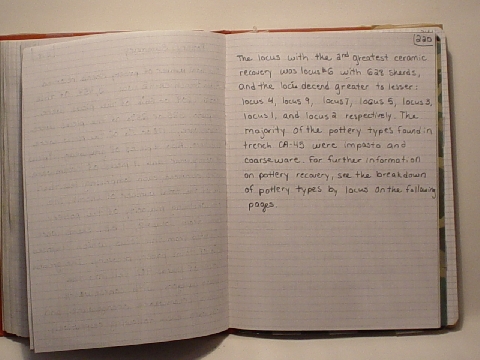 220
The locus with the 2nd greatest ceramic
recovery was locus #6 with 628 sherds,
and the loci decend greater to lesser:
locus 4, locus 9, locus 7, locus 5, locus 3,
locus 1, and locus 2 respectively. The
majority of the pottery types found in
trench CA-45 were impasto and
coarseware. For further information
on pottery recovery, see the breakdown
of pottery types by locus on the following
pages.